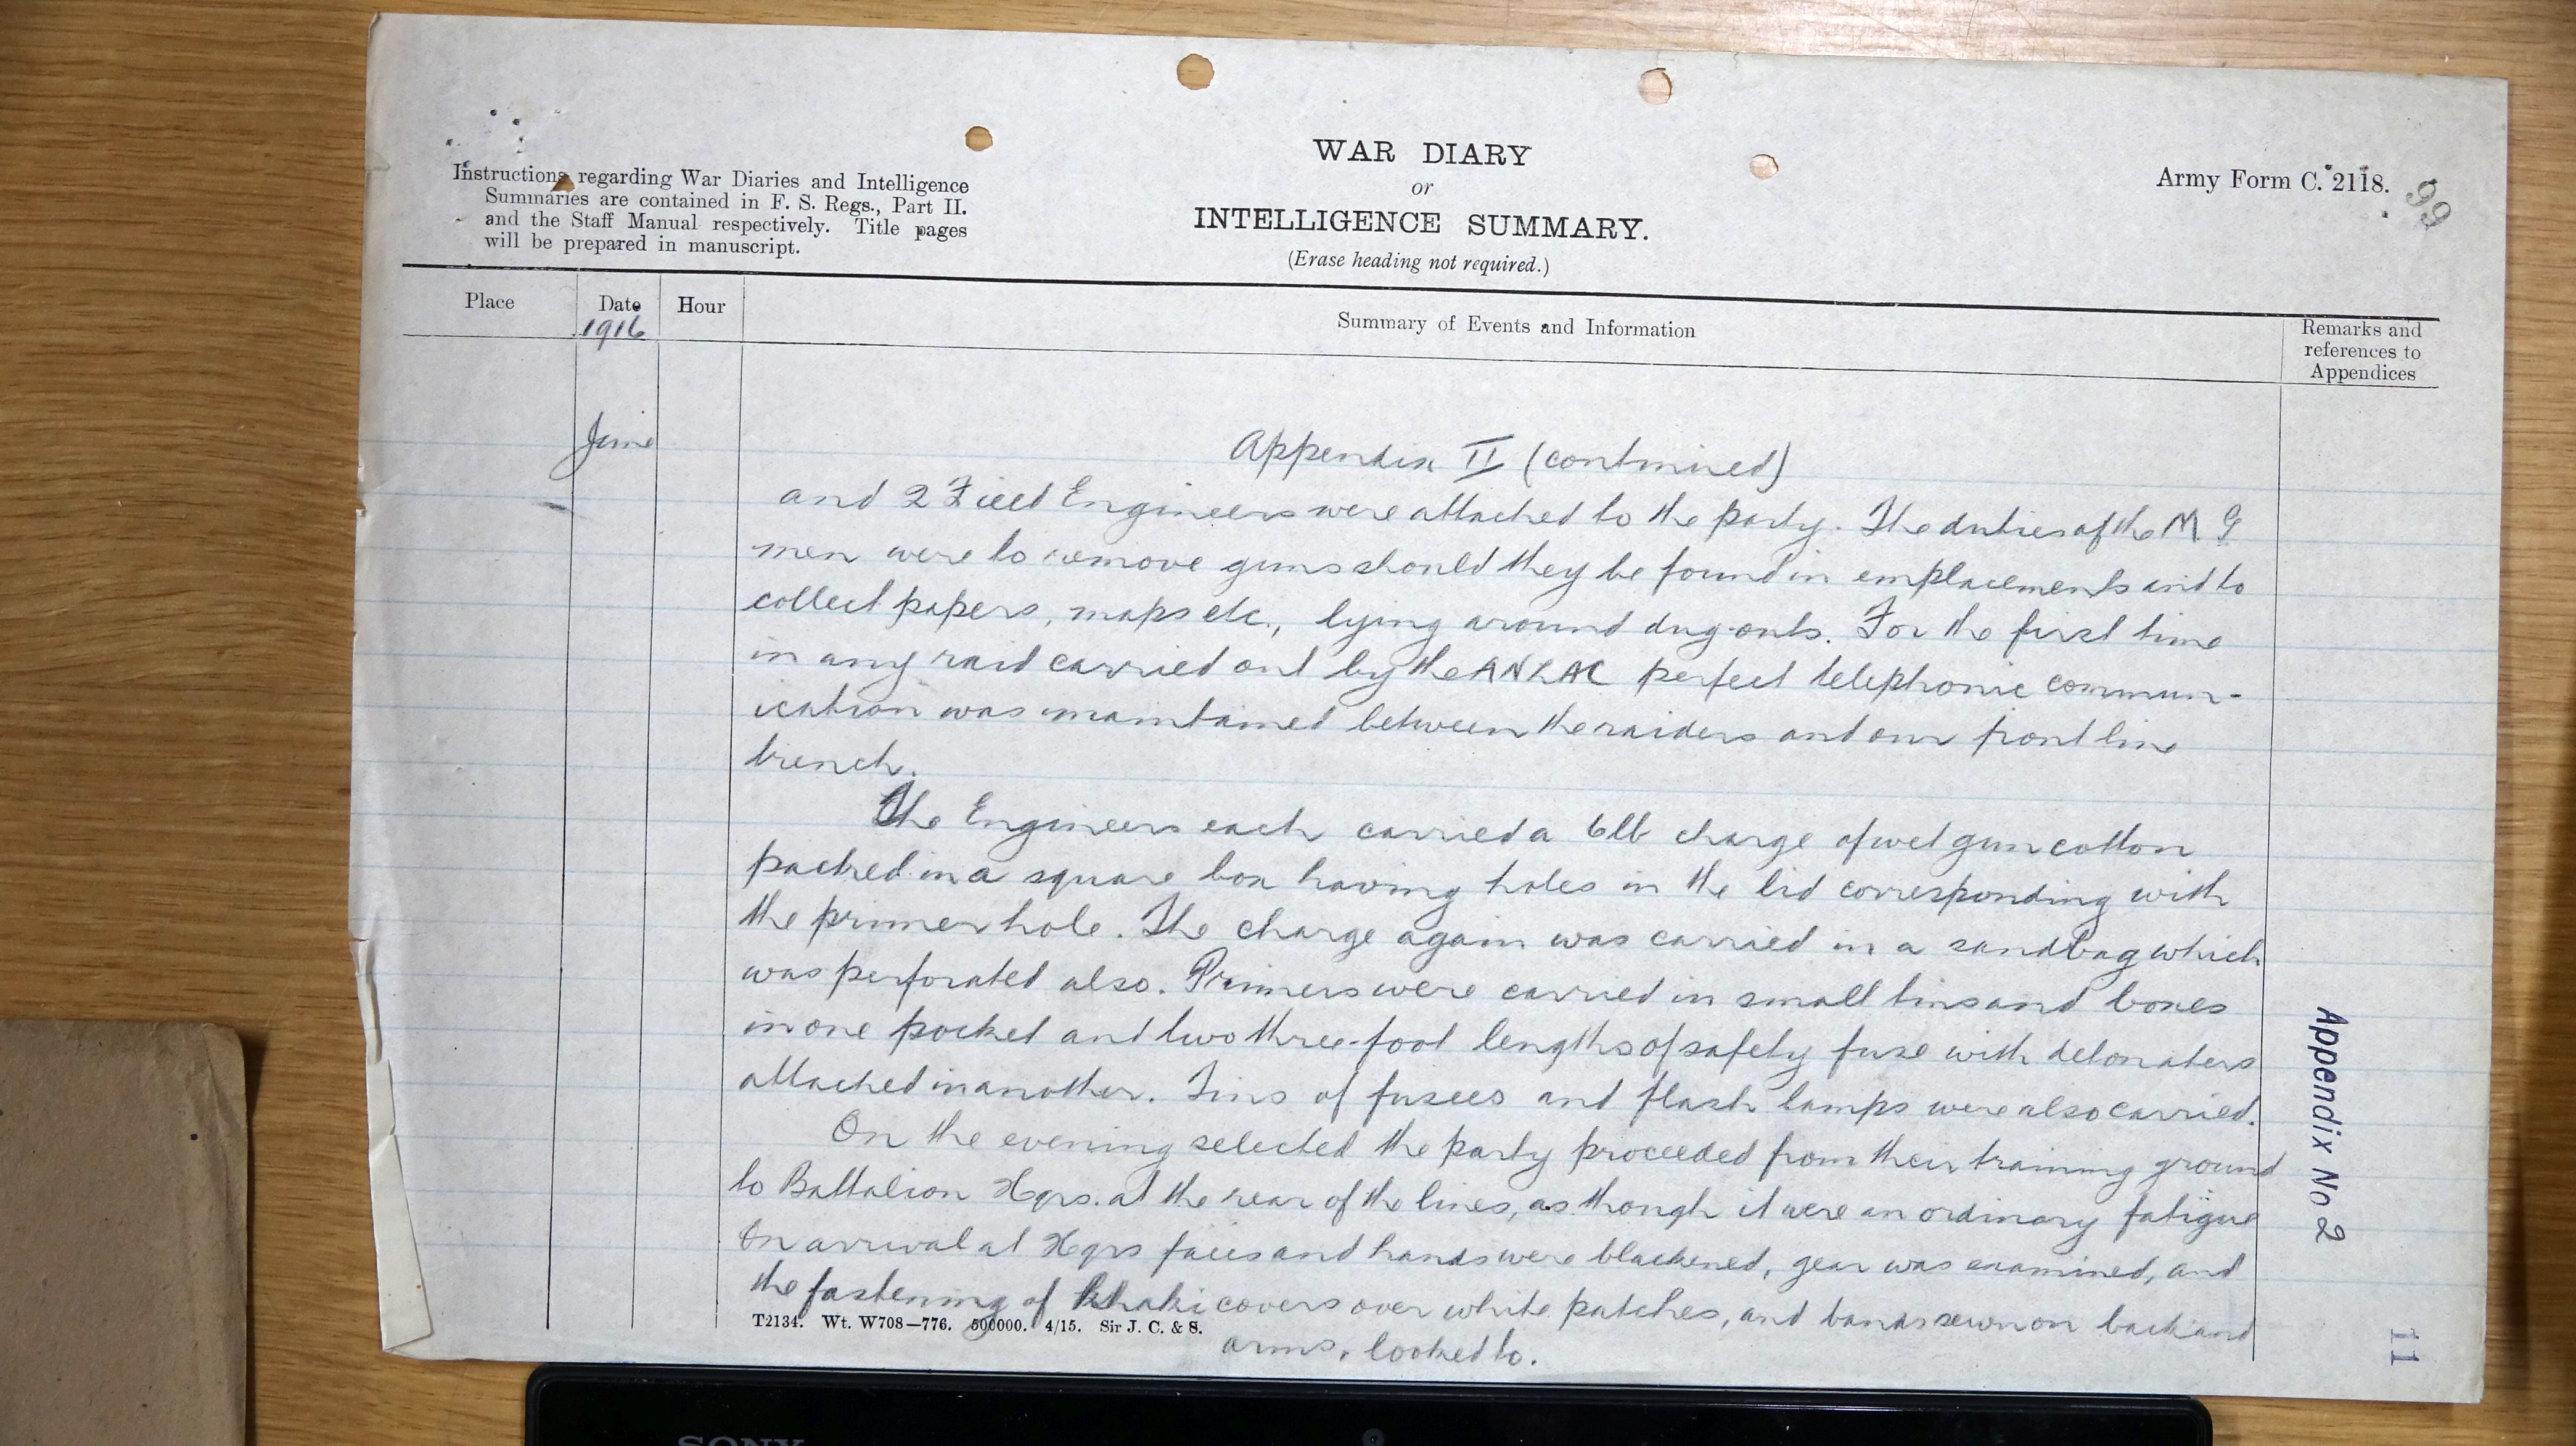 WAR DIARY
or
INTELLIGENCE SUMMARY.
(Erase heading not required.)
Instructions regarding War Diaries and Intelligence
Summaries are contained in F. S. Regs., Part II.
and the Staff Manual respectively. Title pages
will be prepared in manuscript.
Army Form C. 2118.
99
Place
Date
1916
Hour
Summary of Events and Information
Remarks and
references to
Appendices
June
Appendix II (continued)
and 2 Field Engineers were attached to the party. The duties of the M G
men were to remove guns should they be found in emplacements and to
collect papers, maps etc., lying around dug-outs. For the first time
in any raid carried out by the ANZAC perfect telephonic commun-
ication was maintained between the raiders and our front line
trench.
The Engineers each carried a 6lb charge of wet gun cotton
packed in a square box having holes in the lid corresponding with
the primer hole. The charge again was carried in a sandbag which
was perforated also. Primers were carried in small tins and boxes
in one pocket and two three-foot lengths of safety fuse with detonaters
attached in another. Tins of fusees and flash lamps were also carried.
On the evening selected the party proceeded from their training ground
to Battalion Hqrs. at the rear of the lines, as though it were an ordinary fatigue
On arrival at Hqrs faces and hands were blackened, gear was examined, and
the fastening of khaki covers over white patches, and bands sewn on back and
arms, looked to.
T2134. Wt. W708—776. 500000. 4/15. Sir J. C. & S.
Appendix No 2
11
SONY